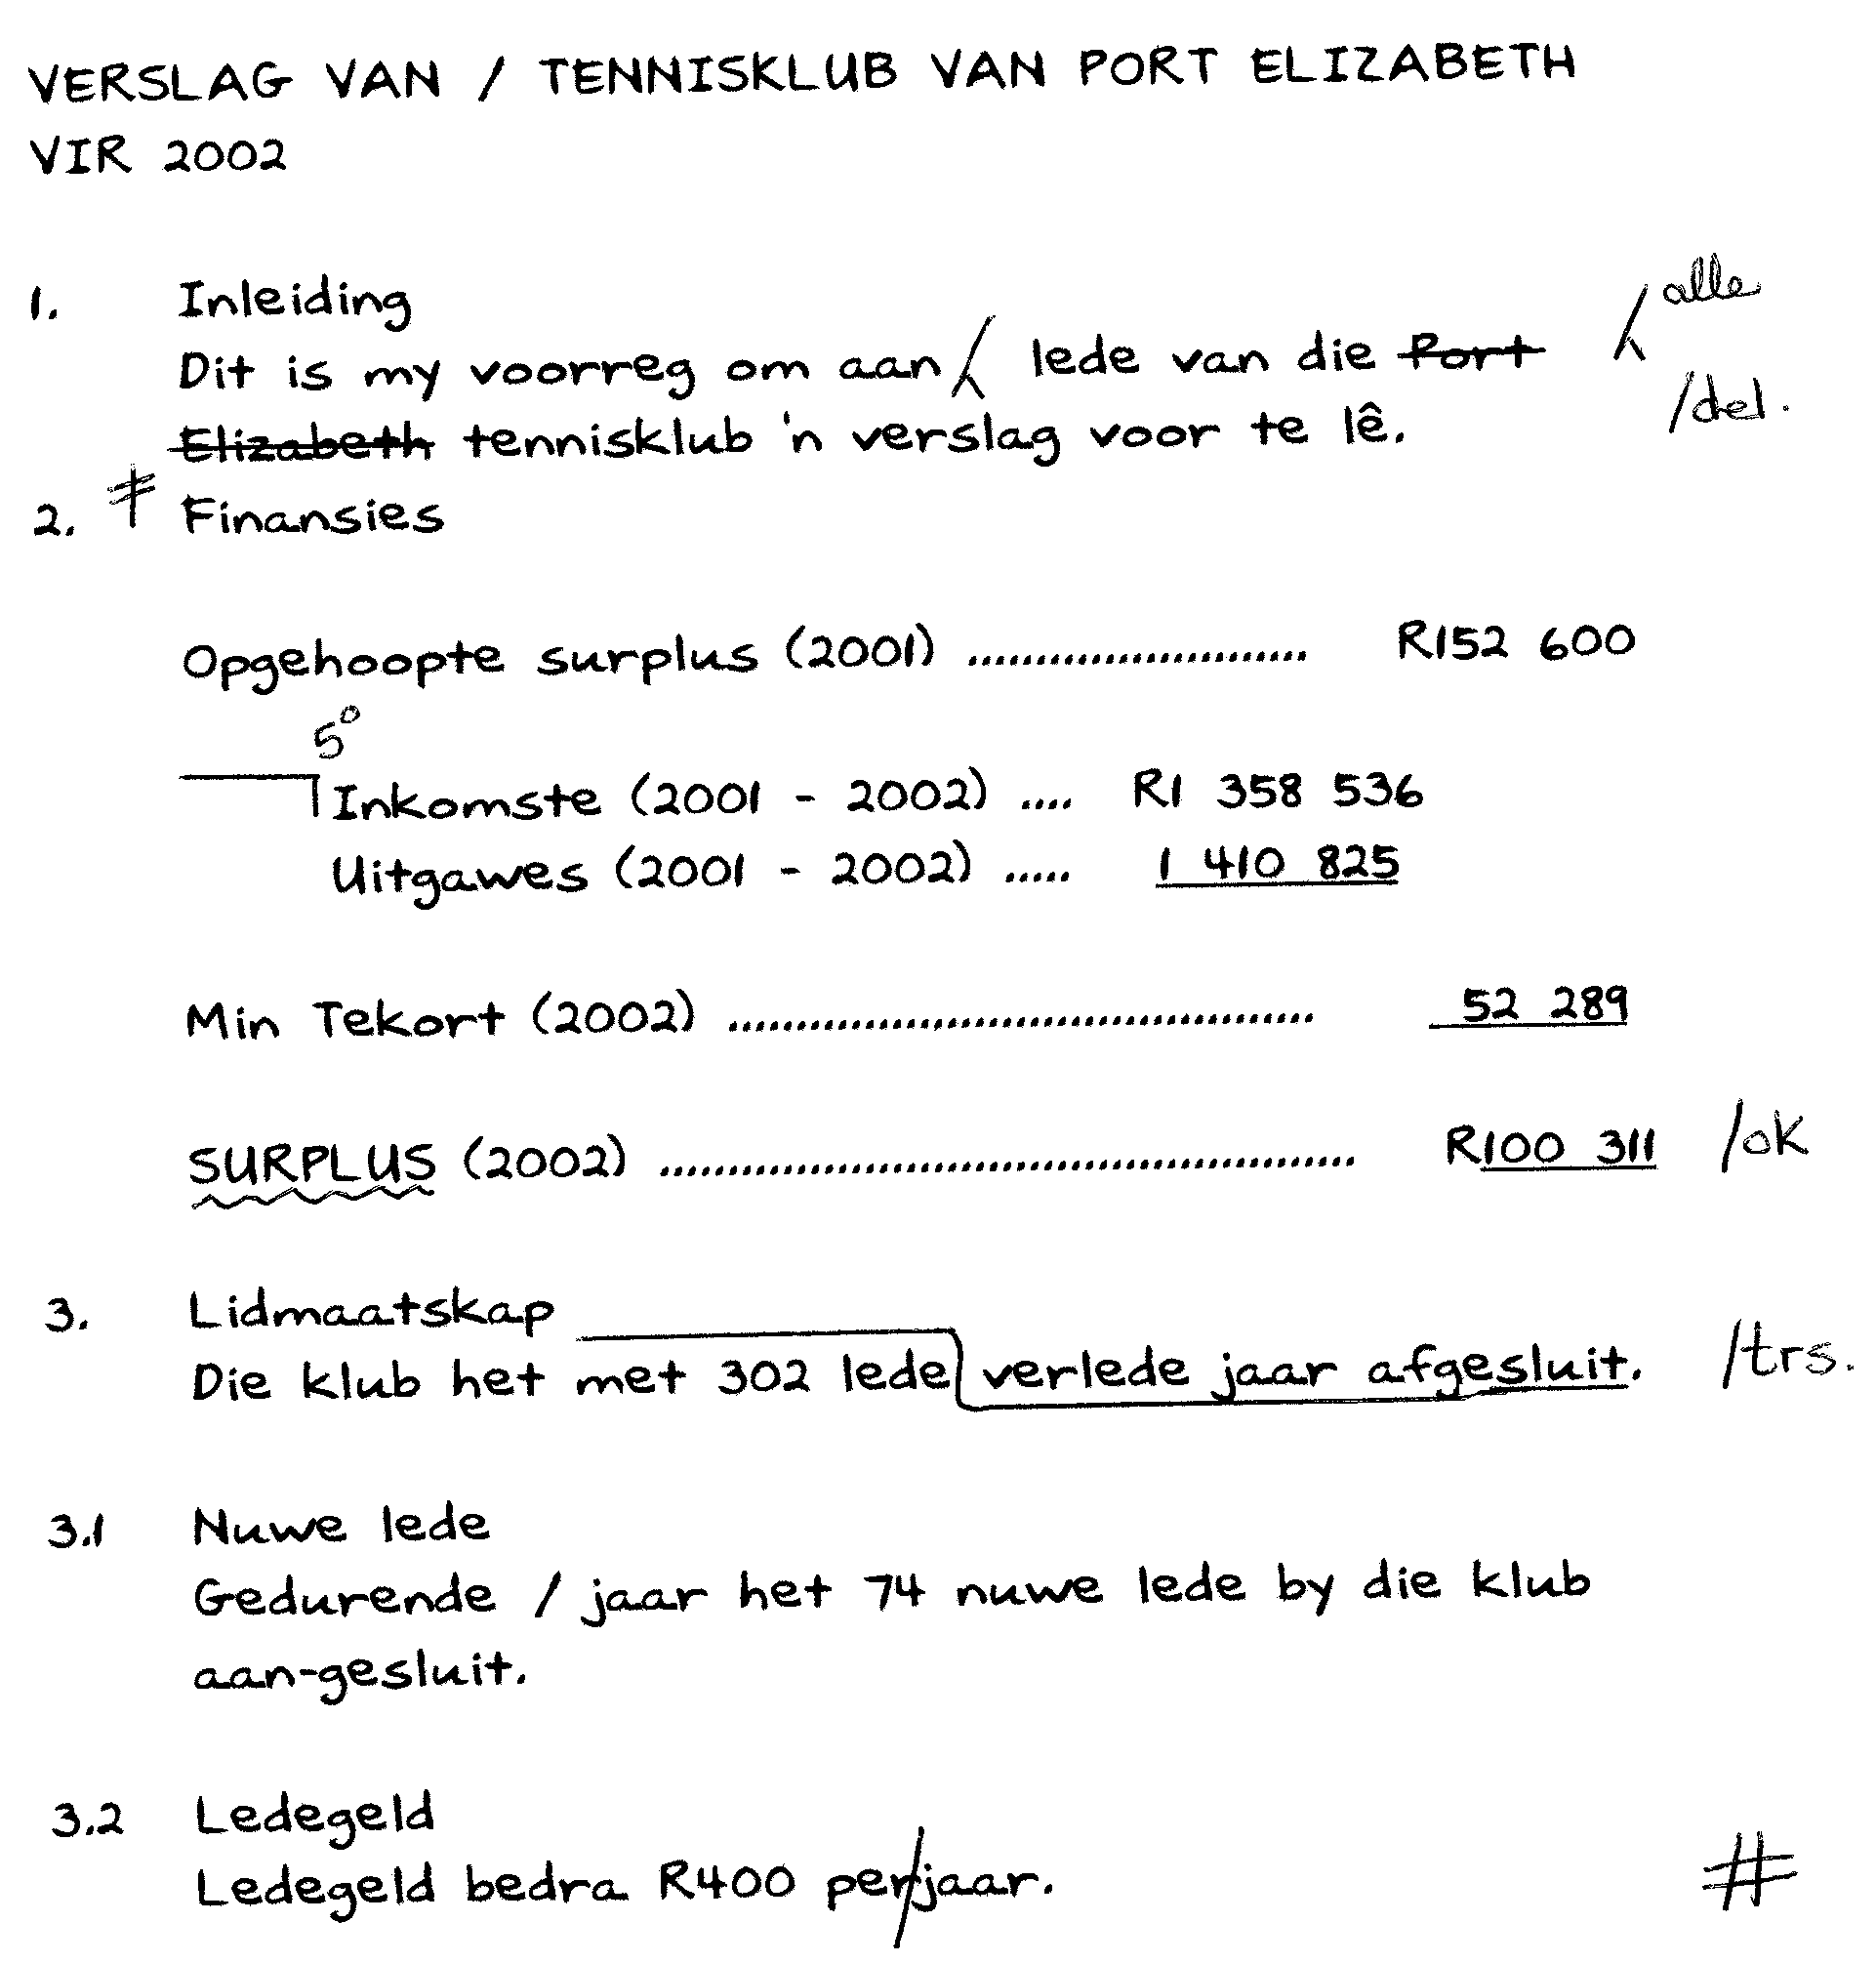 VERSLAG VAN / TENNISKLUB VAN PORT ELIZABETH
VIR 2002
1. Inleiding
alle
Dit is my voorreg om aan lede van die Port
/del.
Elizabeth tennisklub 'n verslag voor te lê.
2. Finansies
Opgehoopte surplus (2001) ......................... R152 600
5°
Inkomste (2001 - 2002) .... R1 358 536
Uitgawes (2001 - 2002) ..... 1 410 825
Min Tekort (2002) ........................................... 52 289
SURPLUS (2002) ................................................... R100 311 /ok
3. Lidmaatskap
Die klub het met 302 lede verlede jaar afgesluit. /trs.
3.1 Nuwe lede
Gedurende / jaar het 74 nuwe lede by die klub
aan-gesluit.
3.2 Ledegeld
Ledegeld bedra R400 per/jaar. #